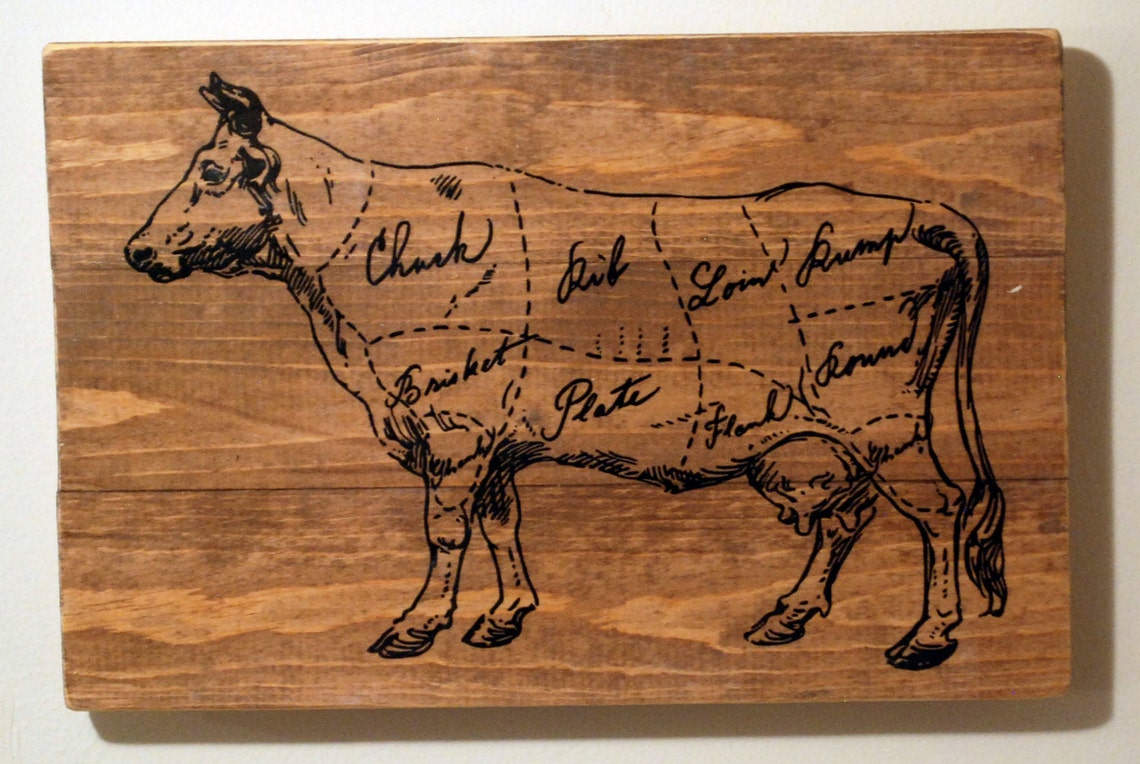 Chuck
Rib
Loin
Rump
Brisket
Plate
Flank
Round
Shank
Shank